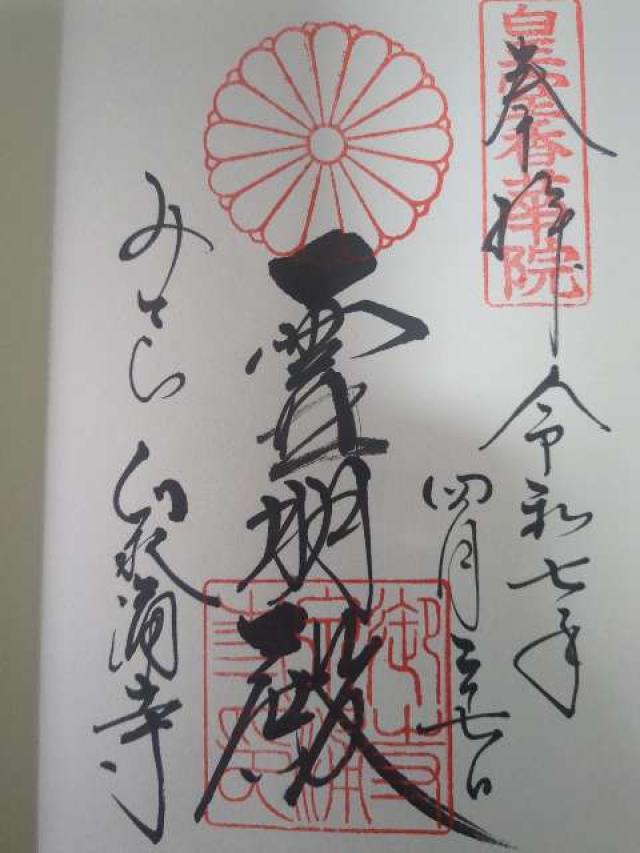 皇室香華院
奉拝 令和七年
四月二十七日
霊明殿
みてら 泉涌寺